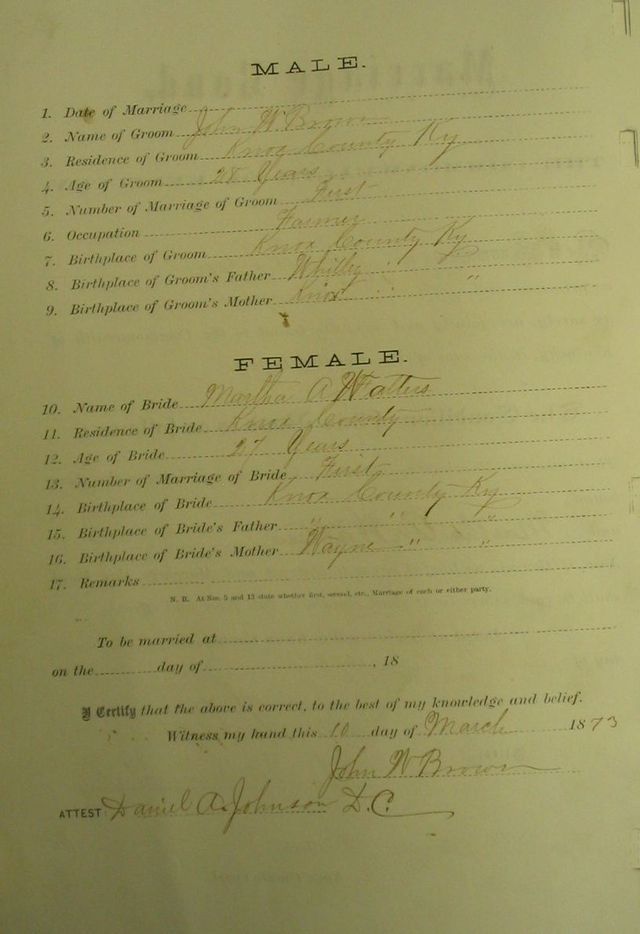 MALE.
1. Date of Marriage
2. Name of Groom John W Brown
3. Residence of Groom Knox County Ky
4. Age of Groom 28 Years
5. Number of Marriage of Groom First
6. Occupation Farmer
7. Birthplace of Groom Knox County Ky
8. Birthplace of Groom's Father Whitley "
9. Birthplace of Groom's Mother Knox "
FEMALE.
10. Name of Bride Martha A
11. Residence of Bride Knox County
12. Age of Bride 27 Years
13. Number of Marriage of Bride First
14. Birthplace of Bride Knox County Ky
15. Birthplace of Bride's Father " " "
16. Birthplace of Bride's Mother Wayne " "
17. Remarks
N. B. At Nos. 5 and 13 state whether first, second, etc., Marriage of each or either party.
To be married at
on the day of , 18
I Certify that the above is correct, to the best of my knowledge and belief.
Witness my hand this 10 day of March 1873
John W Brown
ATTEST Daniel A. Johnson D.C.